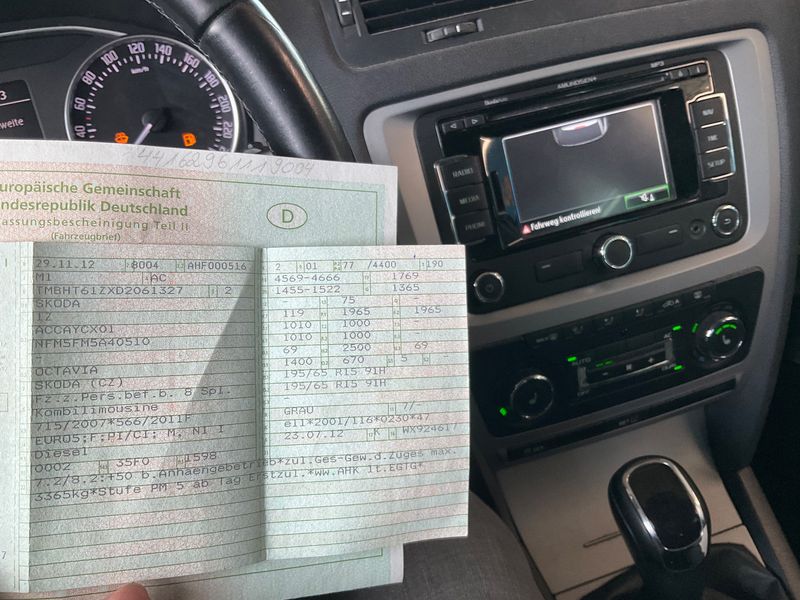 3
weite
40 60 80 100 120 140 160 180 200 220
km/h
AMUNDSEN+
MP3
RADIO
MEDIA
PHONE
NAV
TMC
SETUP
Fahrweg kontrollieren!
AUTO
OFF
4416296111 9004
uropäische Gemeinschaft
undesrepublik Deutschland
assungsbescheinigung Teil II
(Fahrzeugbrief)
D
29.11.12 8004 AHF000516
M1 AC
TMBHT61ZXD2061327 2
SKODA
1Z
ACCAYCX01
NFM5FM5A40510
OCTAVIA
SKODA (CZ)
Fz.z.Pers.bef.b. 8 Spl.
Kombilimousine
715/2007*566/2011F
EURO5;F;PI/CI; M, N1 I
Diesel
0002 35F0 1598
7.2/8.2:+50 b.Anhaengebetrieb*zul.Ges-Gew.d.Zuges max.
3365kg*Stufe PM 5 ab Tag Erstzul.*ww.AHK lt.EGTG*
2 01 77 /4400 190
4569-4666 1769
1455-1522 1365
- 75 -
119 1965 1965
1010 1000 -
1010 1000 -
69 2500 69
1400 670 5 -
195/65 R15 91H
195/65 R15 91H
-
GRAU 7/
e11*2001/116*0230*47
23.07.12 K WX924617
7